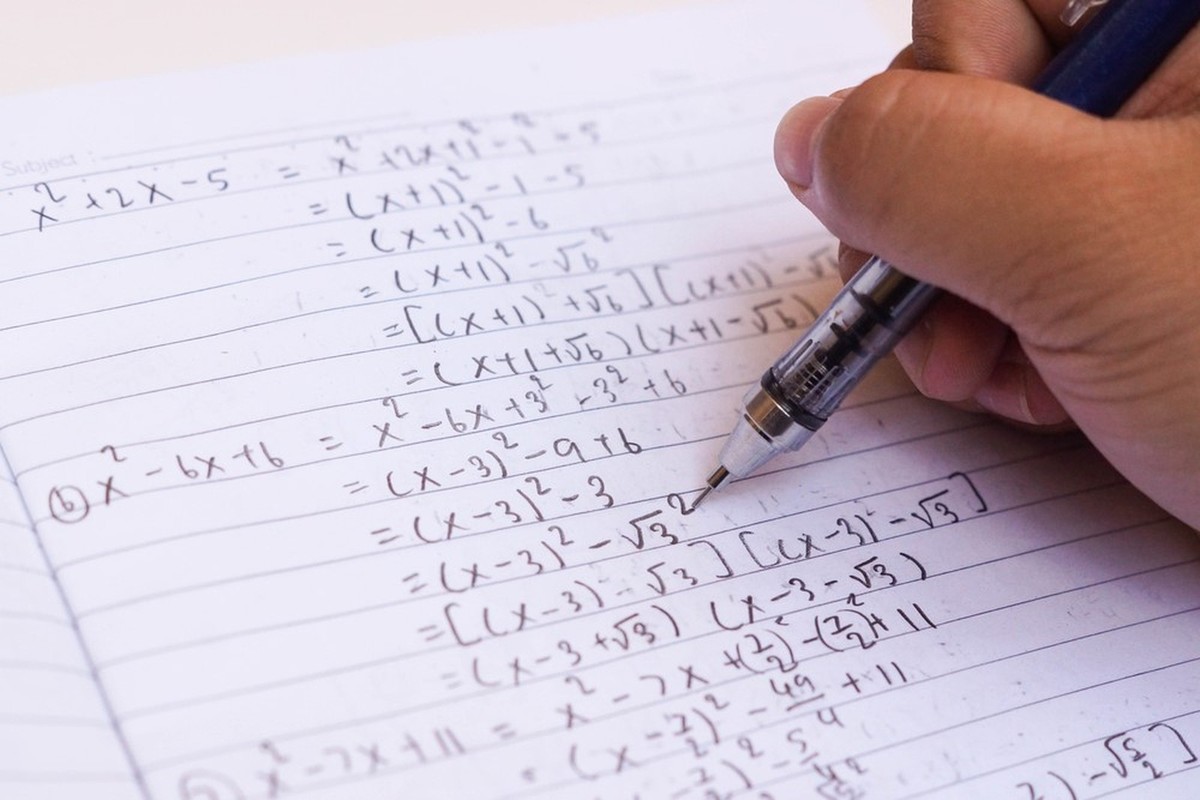 Subject :
x² + 2x - 5 = x² + 2x + 1² - 1² - 5
= (x+1)² - 1 - 5
= (x+1)² - 6
= (x+1)² - √6²
= [(x+1)² + √6] [(x+1)² - √6
= (x+1+√6) (x+1-√6)
ⓑ x² - 6x + 6 = x² - 6x + 3² - 3² + 6
= (x-3)² - 9 + 6
= (x-3)² - 3
= (x-3)² - √3²
= [(x-3) - √3] [(x-3) - √3]
= (x-3+√3) (x-3-√3)
x² - 7x + 11 = x² - 7x + (7/2)² - (7/2)² + 11
= (x - 7/2)² - 49/4 + 11
7/2)² - 5/4
) - √5/2]